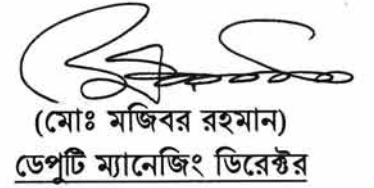 (মোঃ মজিবর রহমান)
ডেপুটি ম্যানেজিং ডিরেক্টর